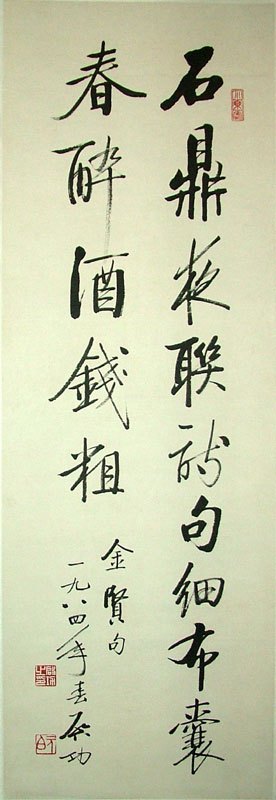 石鼎夜聯詩句細布囊
春酔酒錢粗
金賢句
一九八四年春启功